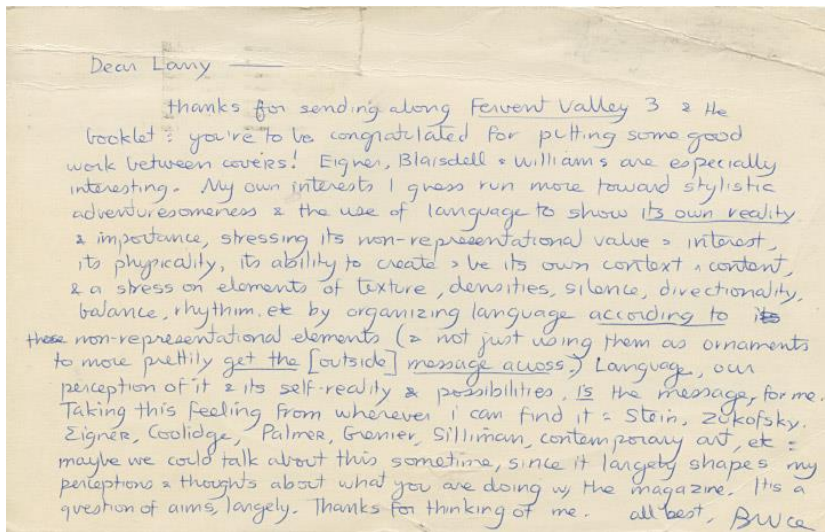 Dear Larry ——
thanks for sending along Fervent Valley 3 & the
booklet: you're to be congratulated for putting some good
work between covers! Eigner, Blaisdell & Williams are especially
interesting. My own interests I guess run more toward stylistic
adventuresomeness & the use of language to show its own reality
& importance, stressing its non-representational value & interest,
its physicality, its ability to create & be its own context & content,
& a stress on elements of texture, densities, silence, directionality,
balance, rhythim. etc by organizing language according to its
these non-representational elements (& not just using them as ornaments
to more prettily get the [outside] message across.) Language, our
perception of it & its self-reality & possibilities, is the message, for me.
Taking this feeling from wherever i can find it: Stein, Zukofsky.
Eigner, Coolidge, Palmer, Grenier, Silliman, contemporary art, etc:
maybe we could talk about this sometime, since it largely shapes my
perceptions & thoughts about what you are doing w/ the magazine. Its a
question of aims, largely. Thanks for thinking of me. all best, Bruce